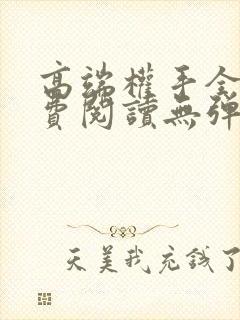 高端權手全
費閱讀無彈
天美我充錢了